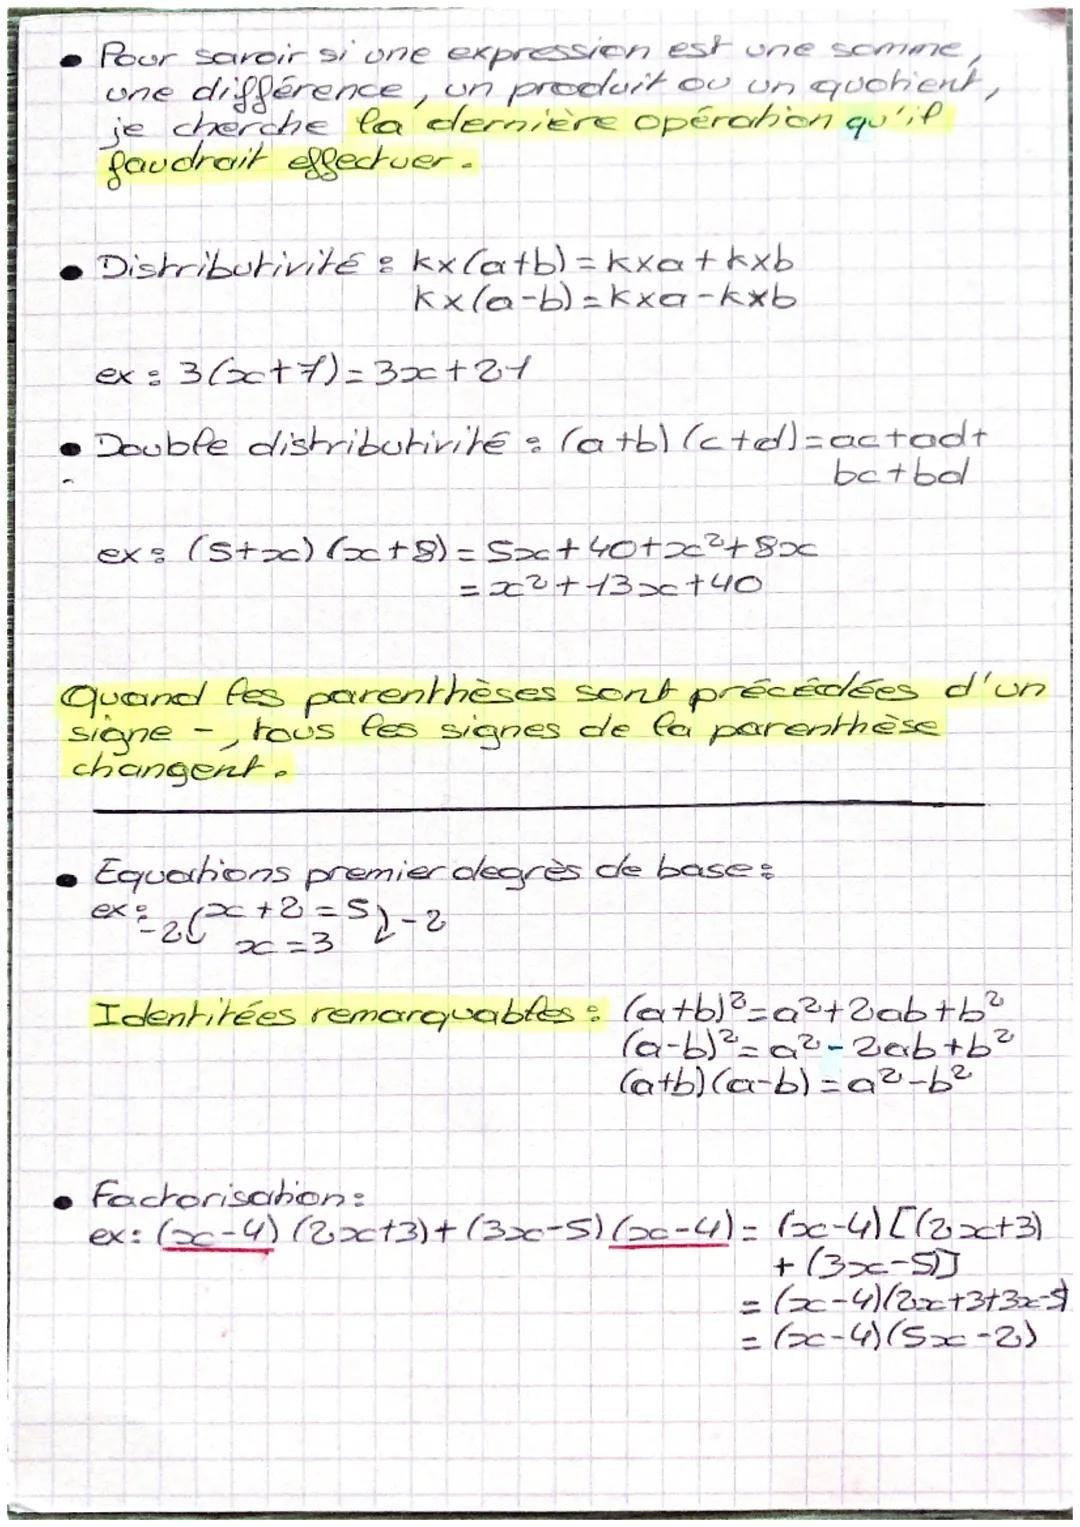 • Pour savoir si une expression est une somme,
une différence, un produit ou un quotient,
je cherche la dernière opération qu'il
faudrait effectuer.
• Distributivité : k×(a+b)=k×a+k×b
k×(a-b)=k×a-k×b
ex : 3(x+7)=3x+21
• Double distributivité : (a+b)(c+d)=ac+ad+
bc+bd
ex : (5+x)(x+8)=5x+40+x²+8x
=x²+13x+40
Quand les parenthèses sont précédées d'un
signe -, tous les signes de la parenthèse
changent.
• Equations premier degrès de base :
ex : -2( x+2=5 )-2
x=3
Identitées remarquables : (a+b)²=a²+2ab+b²
(a-b)²=a²-2ab+b²
(a+b)(a-b)=a²-b²
• Factorisation :
ex : (x-4)(2x+3)+(3x-5)(x-4)=(x-4)[(2x+3)
+(3x-5)]
=(x-4)(2x+3+3x-5)
=(x-4)(5x-2)